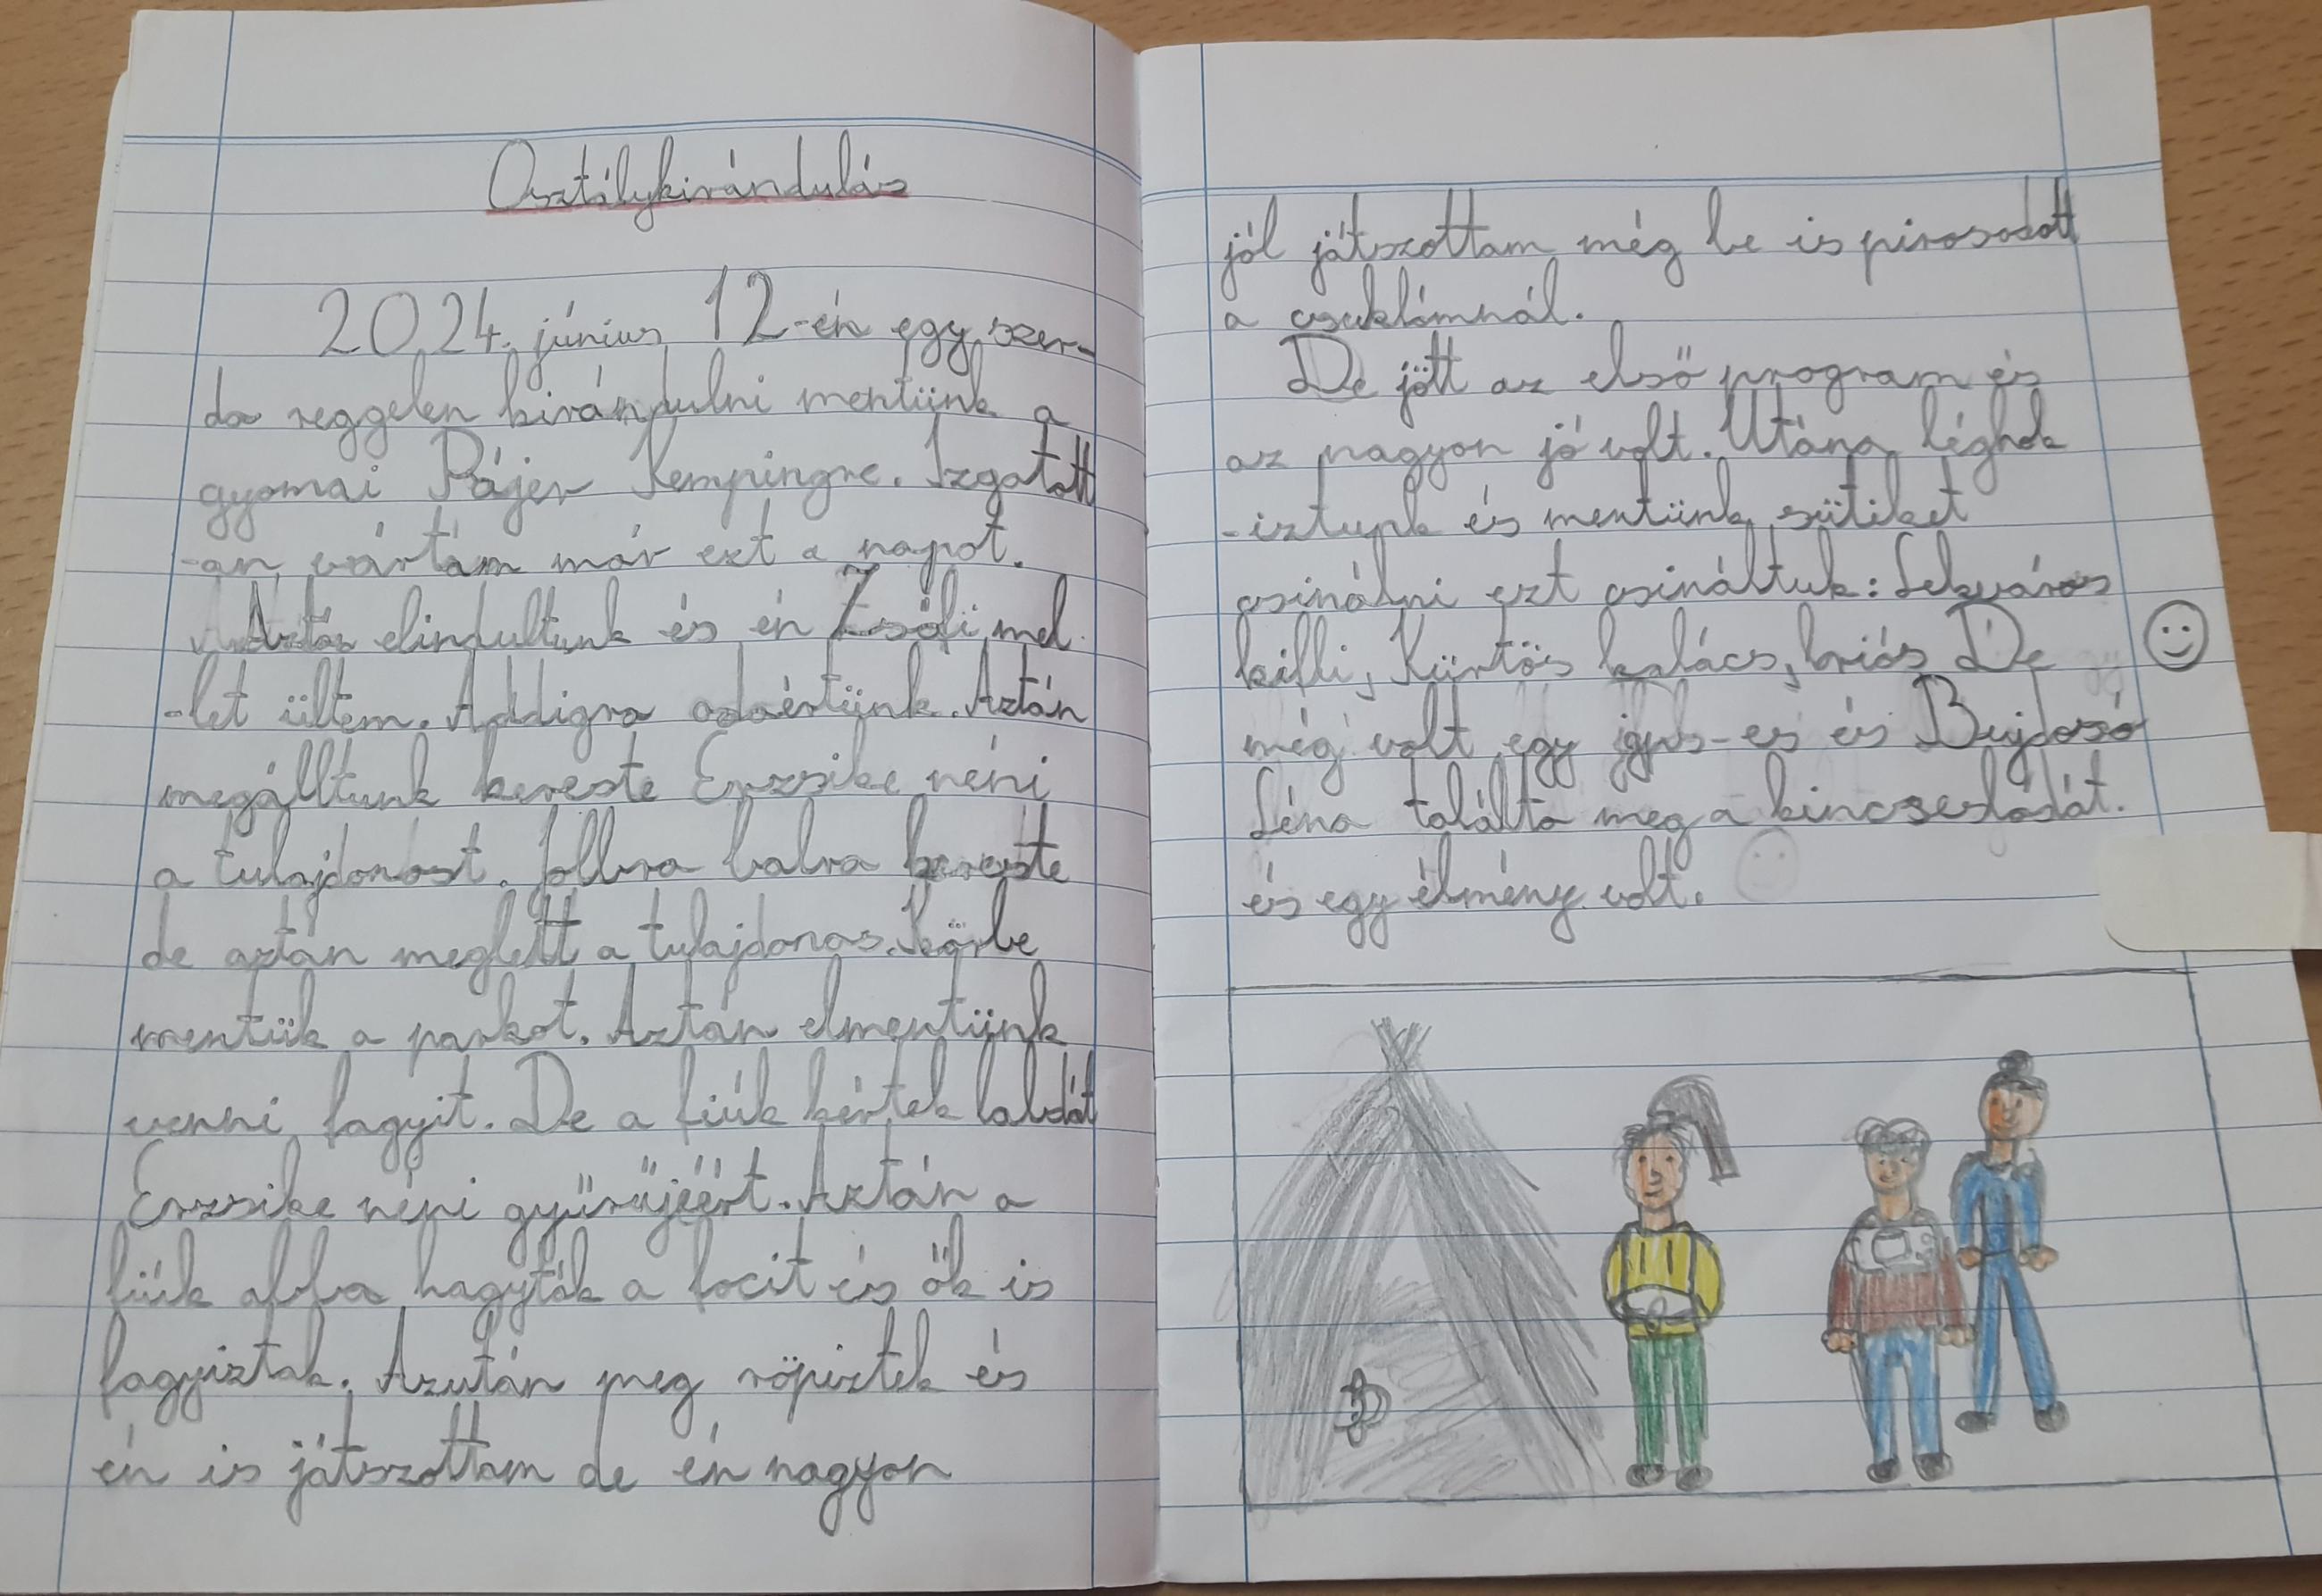 Osztálykirándulás
2024. június 12-én egy szer-
da reggelen kirándulni mentünk a
gyomai Pájer Kempingre. Izgatott
-an vártam már ezt a napot.
Aztán elindultunk és én Zsófi mel
-let ültem. Addigra odaértünk. Aztán
megálltunk kereste Erzsike néni
a tulajdonost. Jobbra balra kereste
de aztán meglett a tulajdonos. Körbe
mentük a parkot. Aztán elmentünk
venni fagyit. De a fiúk kértek labdát
Erzsike néni gyűrűjéért. Aztán a
fiúk abba hagyták a focit és ők is
fagyiztak. Azután meg röpiztek és
én is játszottam de én nagyon
jól játszottam még be is pirosodott
a csuklómnál.
De jött az első program és
az nagyon jó volt. Utána léghok
-iztunk és mentünk sütiket
csinálni ezt csináltuk: Lekváros
kifli, Kürtös kalács, briós De
még volt egy gps-es és Bujdosó
Léna találta meg a kincsesládát.
és egy élmény volt.